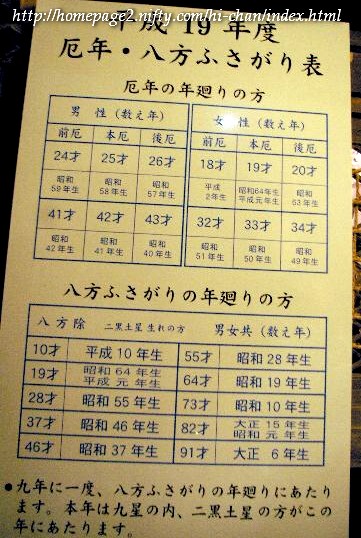 http://homepage2.nifty.com/hi-chan/index.html
平成 19 年度
厄年・八方ふさがり表
厄年の年廻りの方
男 性 (数え年) 女 性 (数え年)
前厄 本厄 後厄 前厄 本厄 後厄
24才 25才 26才 18才 19才 20才
昭和 昭和 昭和 平成 昭和64年生 昭和
59年生 58年生 57年生 2年生 平成元年生 63年生
41才 42才 43才 32才 33才 34才
昭和 昭和 昭和 昭和 昭和 昭和
42年生 41年生 40年生 51年生 50年生 49年生
八方ふさがりの年廻りの方
八 方 除 二黒土星 生れの方 男女共 (数え年)
10才 平成 10 年生 55才 昭和 28 年生
19才 昭和 64 年生 平成 元 年生 64才 昭和 19 年生
28才 昭和 55 年生 73才 昭和 10 年生
37才 昭和 46 年生 82才 大正 15 年生 昭和 元 年生
46才 昭和 37 年生 91才 大正 6 年生
●九年に一度、八方ふさがりの年廻りにあたり
ます。本年は九星の内、二黒土星の方がこの
年にあたります。